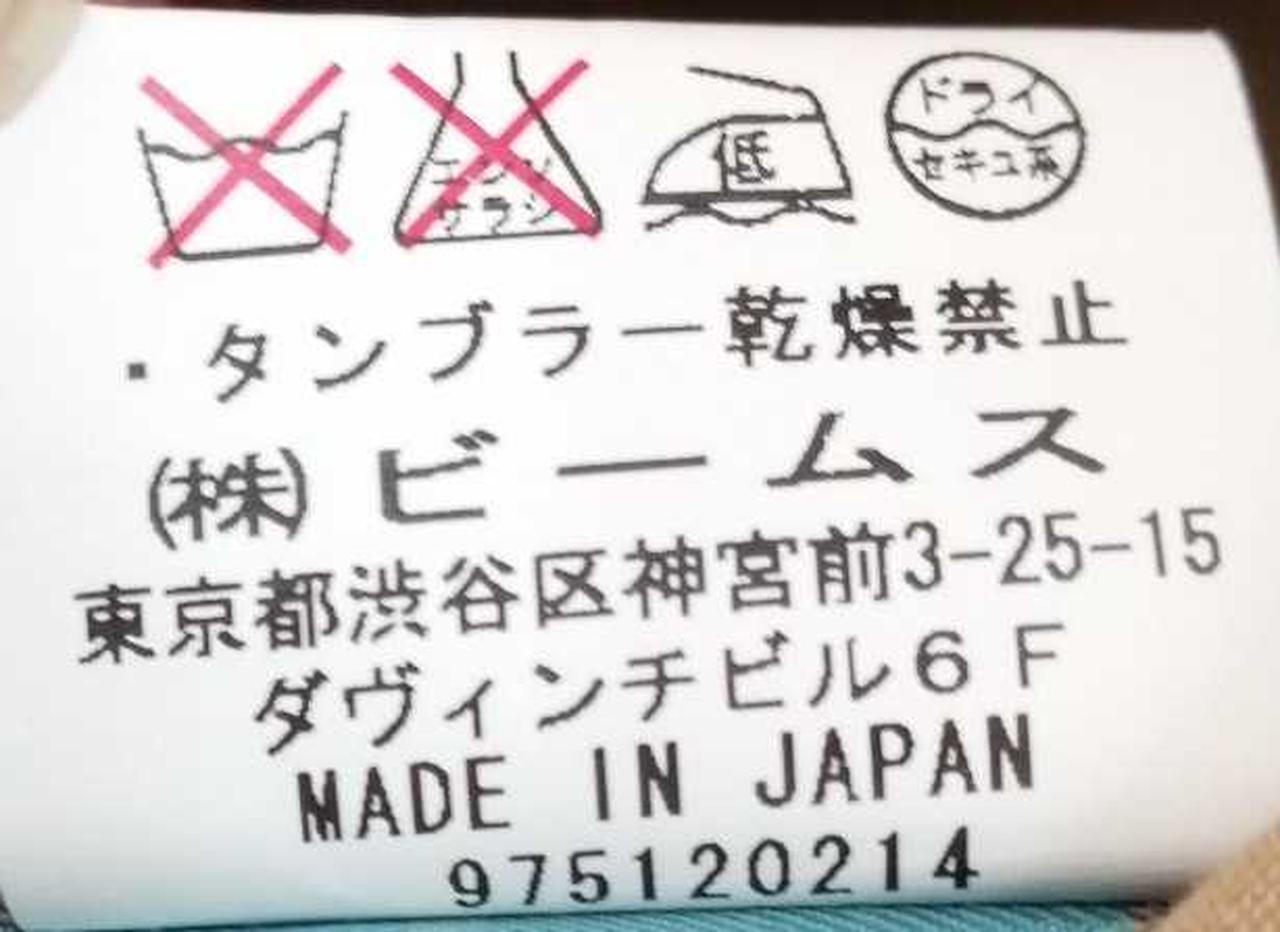 エンソ
サラシ
低
ドライ
セキユ系
・タンブラー乾燥禁止
(株)ビームス
東京都渋谷区神宮前3-25-15
ダヴィンチビル6F
MADE IN JAPAN
975120214